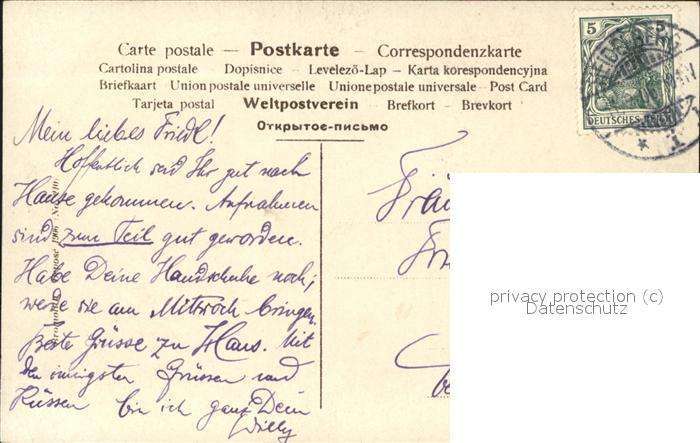 Carte postale — Postkarte — Correspondenzkarte
Cartolina postale - Dopisnice - Levelező-Lap - Karta korespondencyjna
Briefkaart Union postale universelle Unione postale universale - Post Card
Tarjeta postal - Weltpostverein - Brefkort - Brevkort
Открытое-письмо
5
DEUTSCHES REICH
Mein liebes Friedl!
Hoffentlich seid Ihr gut nach
Hause gekommen. Aufnahmen
sind zum Teil gut geworden.
Habe Deine Handschuhe noch;
werde sie am Mittwoch bringen.
Beste Grüsse zu Haus. Mit
den innigsten Grüssen und
Küssen bin ich ganz Dein
Willy
Fräu
privacy protection (c)
Datenschutz